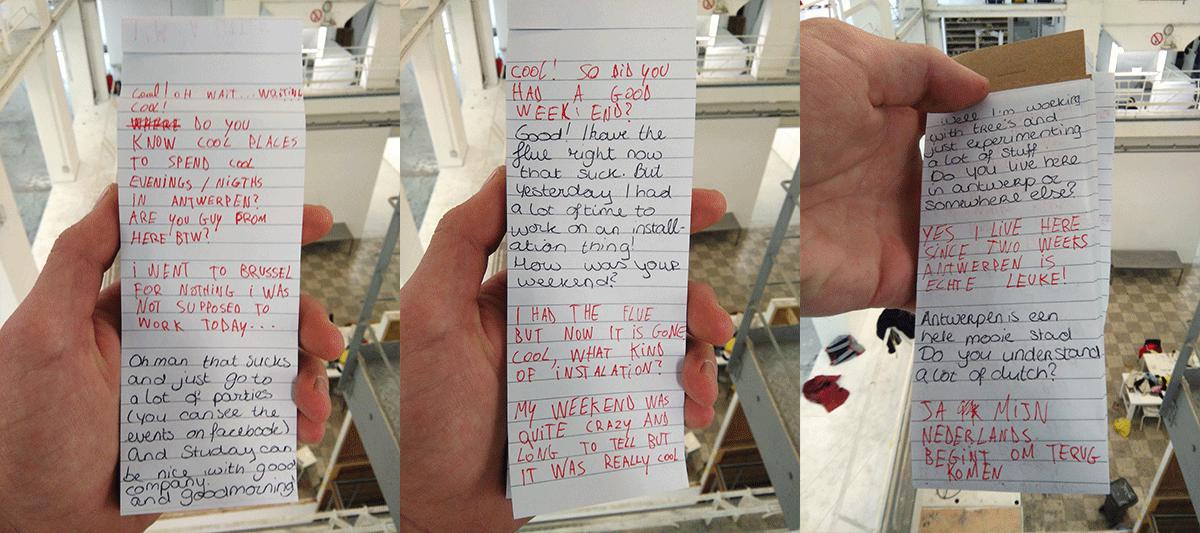 Cool! OH WAIT... WRITING
COOL!
WHERE DO YOU
KNOW COOL PLACES
TO SPEND COOL
EVENINGS / NIGTHS
IN ANTWERPEN?
ARE YOU GUY FROM
HERE BTW?
I WENT TO BRUSSEL
FOR NOTHING I WAS
NOT SUPPOSED TO
WORK TODAY...
Oh man that sucks
and just go to
a lot of parties
(you can see the
events on facebook)
And Studay can
be nice with good
company.
and goodmorning!
COOL! SO DID YOU
HAD A GOOD
WEEK END?
Good! I have the
flue right now
that suck. But
yesterday I had
a lot of time to
work on an install-
ation thing!
How was your
weekend?
I HAD THE FLUE
BUT NOW IT IS GONE
COOL, WHAT KIND
OF INSTALATION?
MY WEEKEND WAS
QUITE CRAZY AND
LONG TO TELL BUT
IT WAS REALLY COOL
Well I'm working
with tree's and
just experimenting
a lot of stuff.
Do you live here
in antwerp or
somewhere else?
YES I LIVE HERE
SINCE TWO WEEKS
ANTWERPEN IS
ECHTE LEUKE!
Antwerpen is een
hele mooie stad
Do you understand
a lot of dutch?
JA MIJN
NEDERLANDS
BEGINT OM TERUG
KOMEN